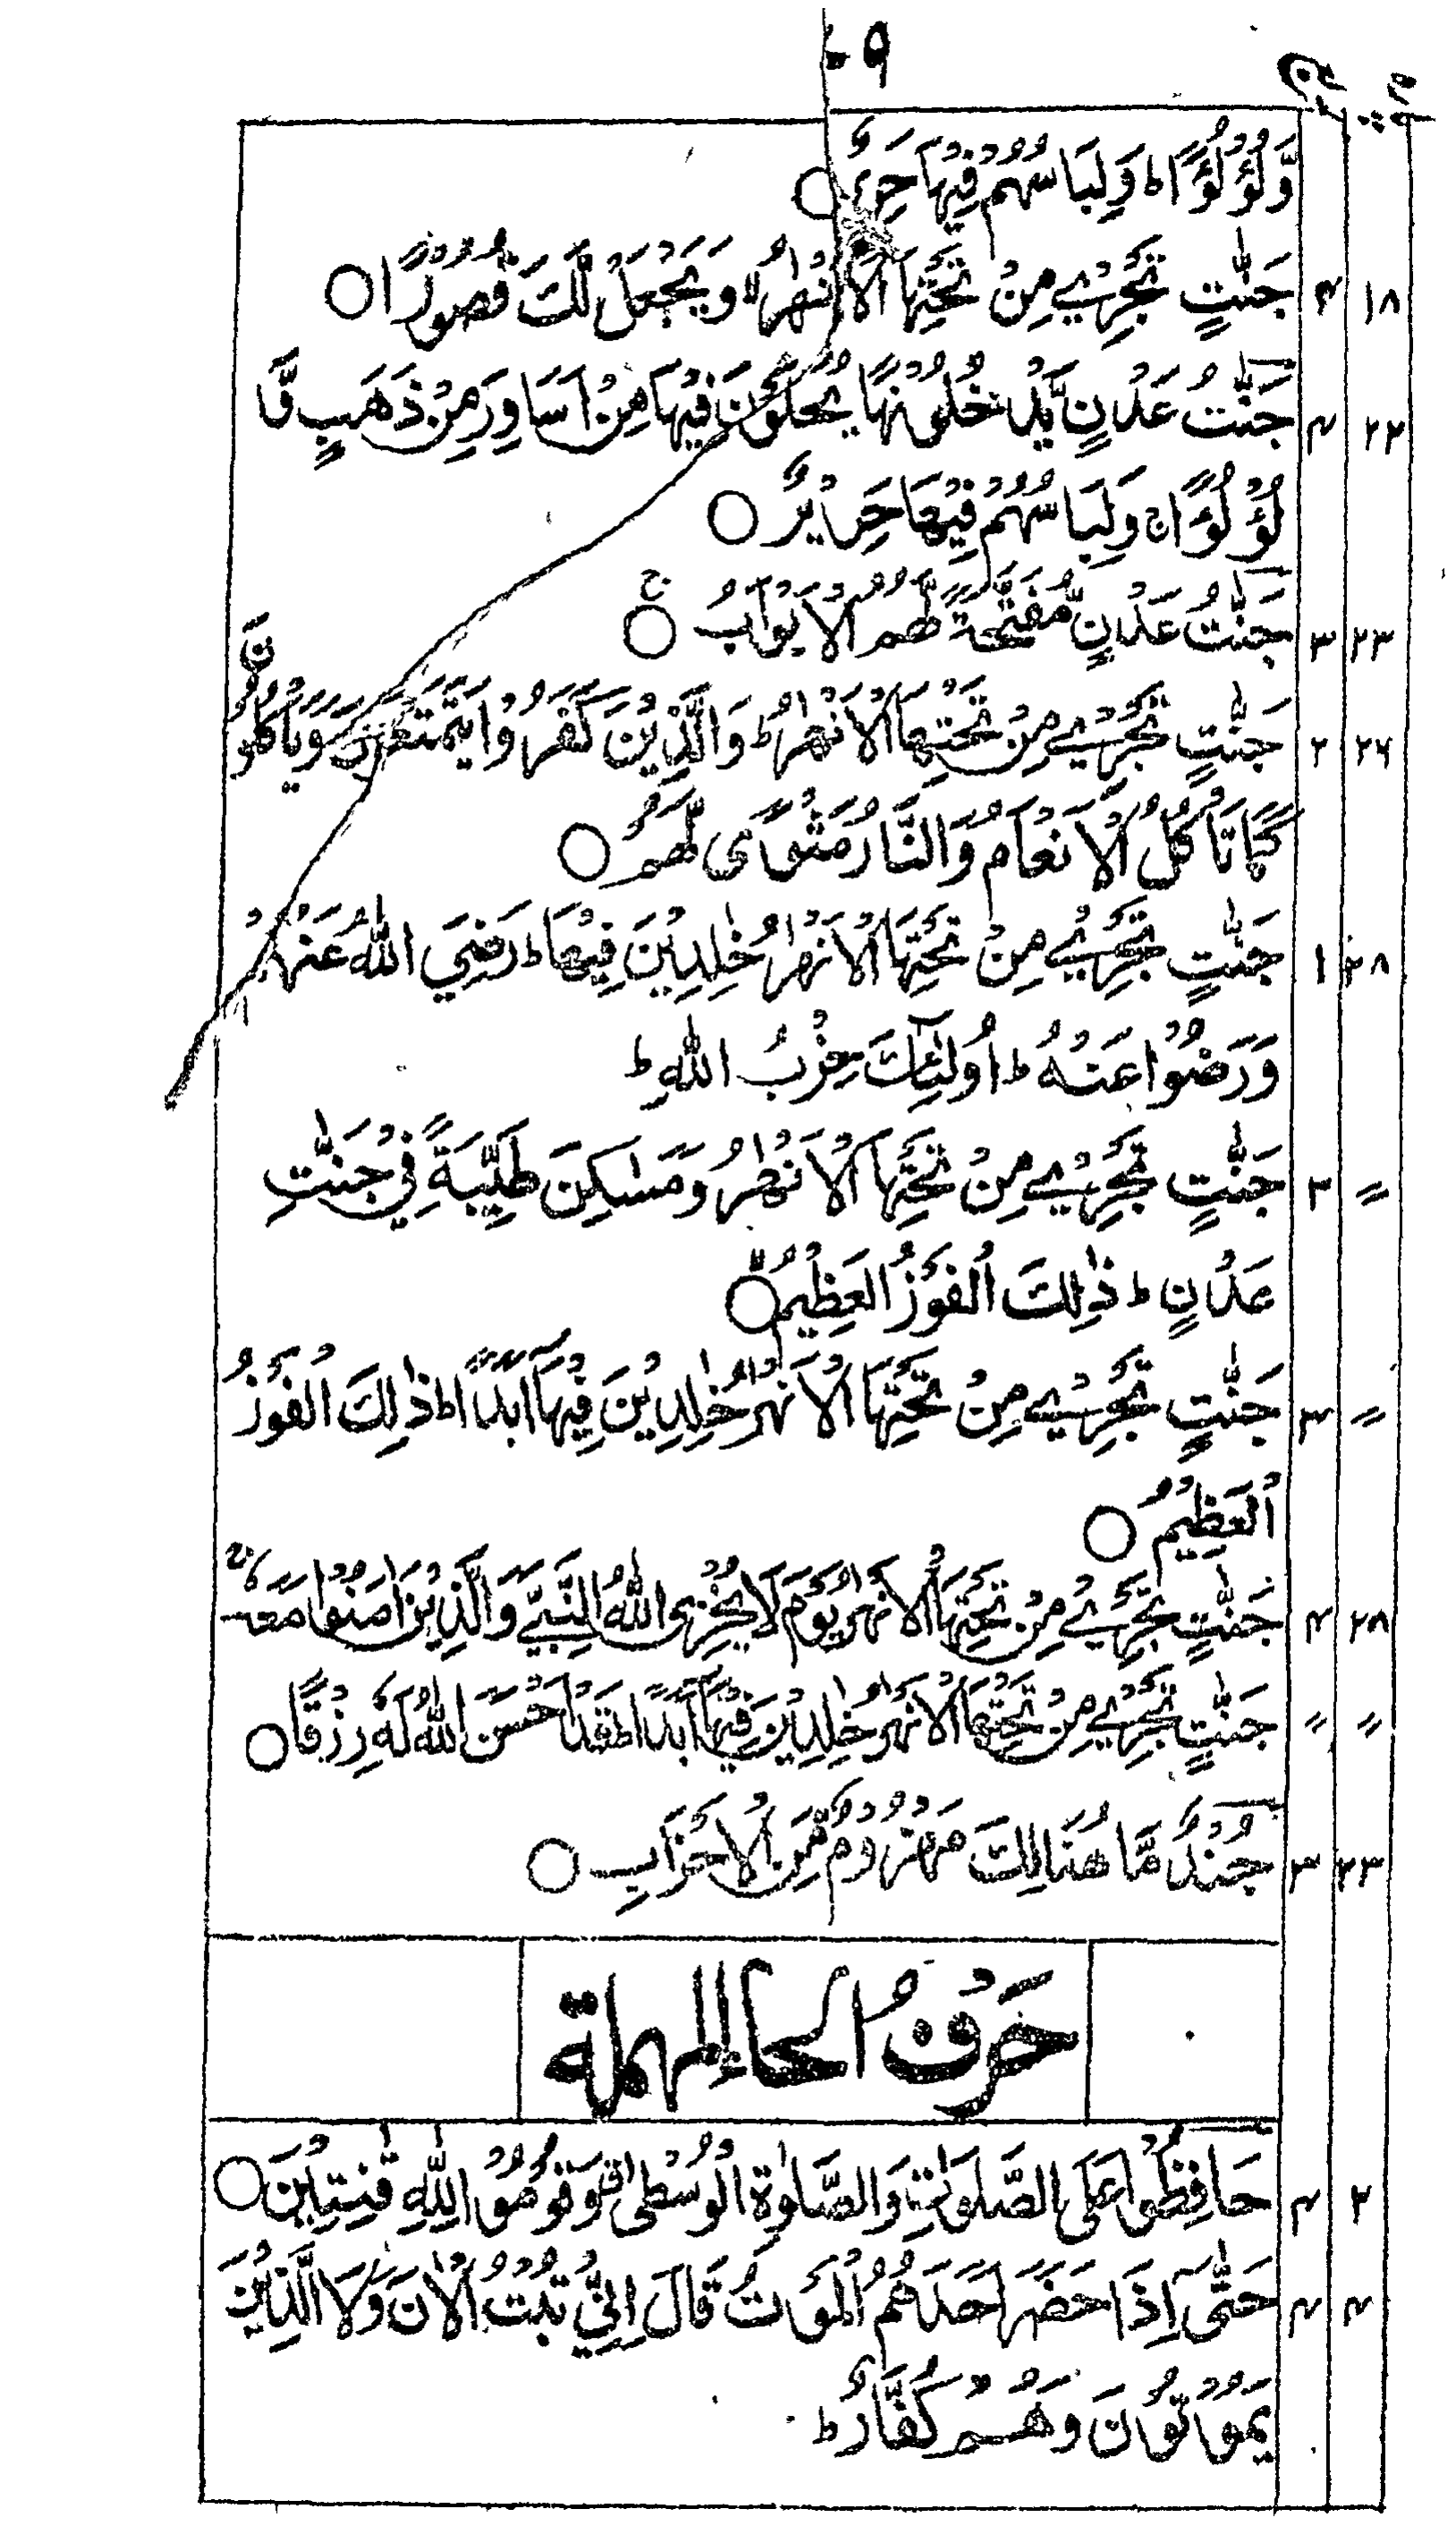 ٩٠
وَّلُؤْلُؤًا ط وَلِبَاسُهُمْ فِيْهَا حَرِيْرٌ ○
١٨ ٤ جَنّٰتٍ تَجْرِيْ مِنْ تَحْتِهَا الْاَنْهٰرُ لا وَيَجْعَلْ لَّكَ قُصُوْرًا ○
٢٢ ٤ جَنّٰتُ عَدْنٍ يَّدْخُلُوْنَهَا يُحَلَّوْنَ فِيْهَا مِنْ اَسَاوِرَ مِنْ ذَهَبٍ وَّ
لُؤْلُؤًا ج وَلِبَاسُهُمْ فِيْهَا حَرِيْرٌ ○
٢٣ ٣ جَنّٰتُ عَدْنٍ مُّفَتَّحَةً لَّهُمُ الْاَبْوَابُ ○ ج
٢٦ ٢ جَنّٰتٍ تَجْرِيْ مِنْ تَحْتِهَا الْاَنْهٰرُ ط وَالَّذِيْنَ كَفَرُوْا يَتَمَتَّعُوْنَ وَيَاْكُلُوْنَ
كَمَا تَاْكُلُ الْاَنْعَامُ وَالنَّارُ مَثْوًى لَّهُمْ ○
٢٨ ١ جَنّٰتٍ تَجْرِيْ مِنْ تَحْتِهَا الْاَنْهٰرُ خٰلِدِيْنَ فِيْهَا ط رَضِيَ اللّٰهُ عَنْهُمْ
وَرَضُوْا عَنْهُ ط اُولٰٓئِكَ حِزْبُ اللّٰهِ ط
〃 ٢ جَنّٰتٍ تَجْرِيْ مِنْ تَحْتِهَا الْاَنْهٰرُ وَمَسٰكِنَ طَيِّبَةً فِيْ جَنّٰتِ
عَدْنٍ ط ذٰلِكَ الْفَوْزُ الْعَظِيْمُ ○
〃 ٣ جَنّٰتٍ تَجْرِيْ مِنْ تَحْتِهَا الْاَنْهٰرُ خٰلِدِيْنَ فِيْهَا اَبَدًا ط ذٰلِكَ الْفَوْزُ
الْعَظِيْمُ ○
٢٨ ٤ جَنّٰتٍ تَجْرِيْ مِنْ تَحْتِهَا الْاَنْهٰرُ يَوْمَ لَا يُخْزِى اللّٰهُ النَّبِيَّ وَالَّذِيْنَ اٰمَنُوْا مَعَهٗ
〃 〃 جَنّٰتٍ تَجْرِيْ مِنْ تَحْتِهَا الْاَنْهٰرُ خٰلِدِيْنَ فِيْهَا اَبَدًا ط قَدْ اَحْسَنَ اللّٰهُ لَهٗ رِزْقًا ○
٢٣ ٣ جُنْدٌ مَّا هُنَالِكَ مَهْزُوْمٌ مِّنَ الْاَحْزَابِ ○
حَرْفُ الحاء المهملة
٢ ٤ حَافِظُوْا عَلَى الصَّلَوٰتِ وَالصَّلٰوةِ الْوُسْطٰى ق وَقُوْمُوْا لِلّٰهِ قٰنِتِيْنَ ○
٤ ٤ حَتّٰى اِذَا حَضَرَ اَحَدَهُمُ الْمَوْتُ قَالَ اِنِّيْ تُبْتُ الْاٰنَ وَلَا الَّذِيْنَ
يَمُوْتُوْنَ وَهُمْ كُفَّارٌ ط